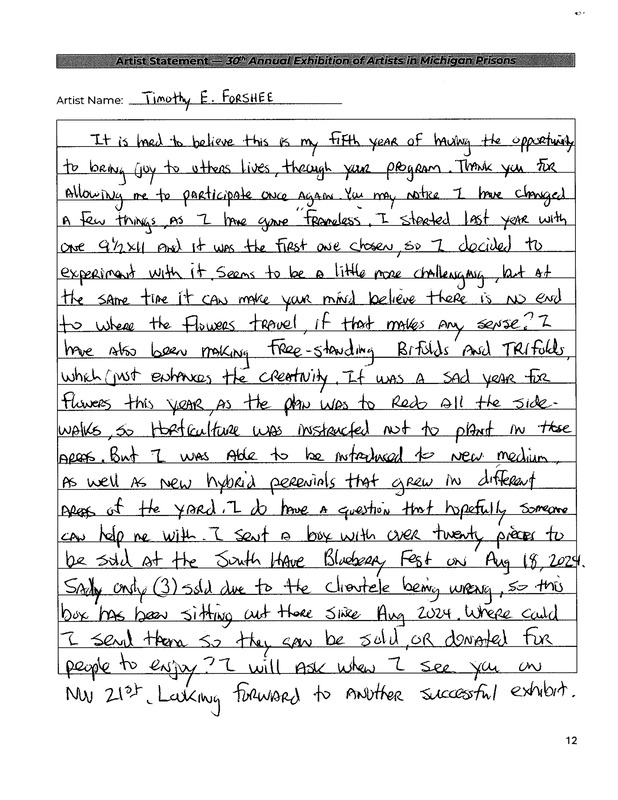 Artist Statement — 30th Annual Exhibition of Artists in Michigan Prisons
Artist Name: Timothy E. Forshee
It is hard to believe this is my fifth year of having the opportunity
to bring joy to others lives, through your program. Thank you for
allowing me to participate once again. You may notice I have changed
a few things, as I have gone "frameless. I started last year with
one 9½x11 and it was the first one chosen, so I decided to
experiment with it. Seems to be a little more challenging, but at
the same time it can make your mind believe there is no end
to where the flowers travel, if that makes any sense? I
have also been making free-standing Bifolds and Trifolds,
which just enhances the creativity. It was a sad year for
flowers this year, as the plan was to redo all the side-
walks, so Horticulture was instructed not to plant in those
areas. But I was able to be introduced to new medium,
as well as new hybrid perenials that grew in different
areas of the yard. I do have a question that hopefully someone
can help me with. I sent a box with over twenty pieces to
be sold at the South Have Blueberry Fest on Aug 18, 2024.
Sadly only (3) sold due to the clientele being wrong, so this
box has been sitting out there since Aug 2024. Where could
I send them so they can be sold, or donated for
people to enjoy? I will ask when I see you on
Nov 21st. Looking forward to another successful exhibit.
12